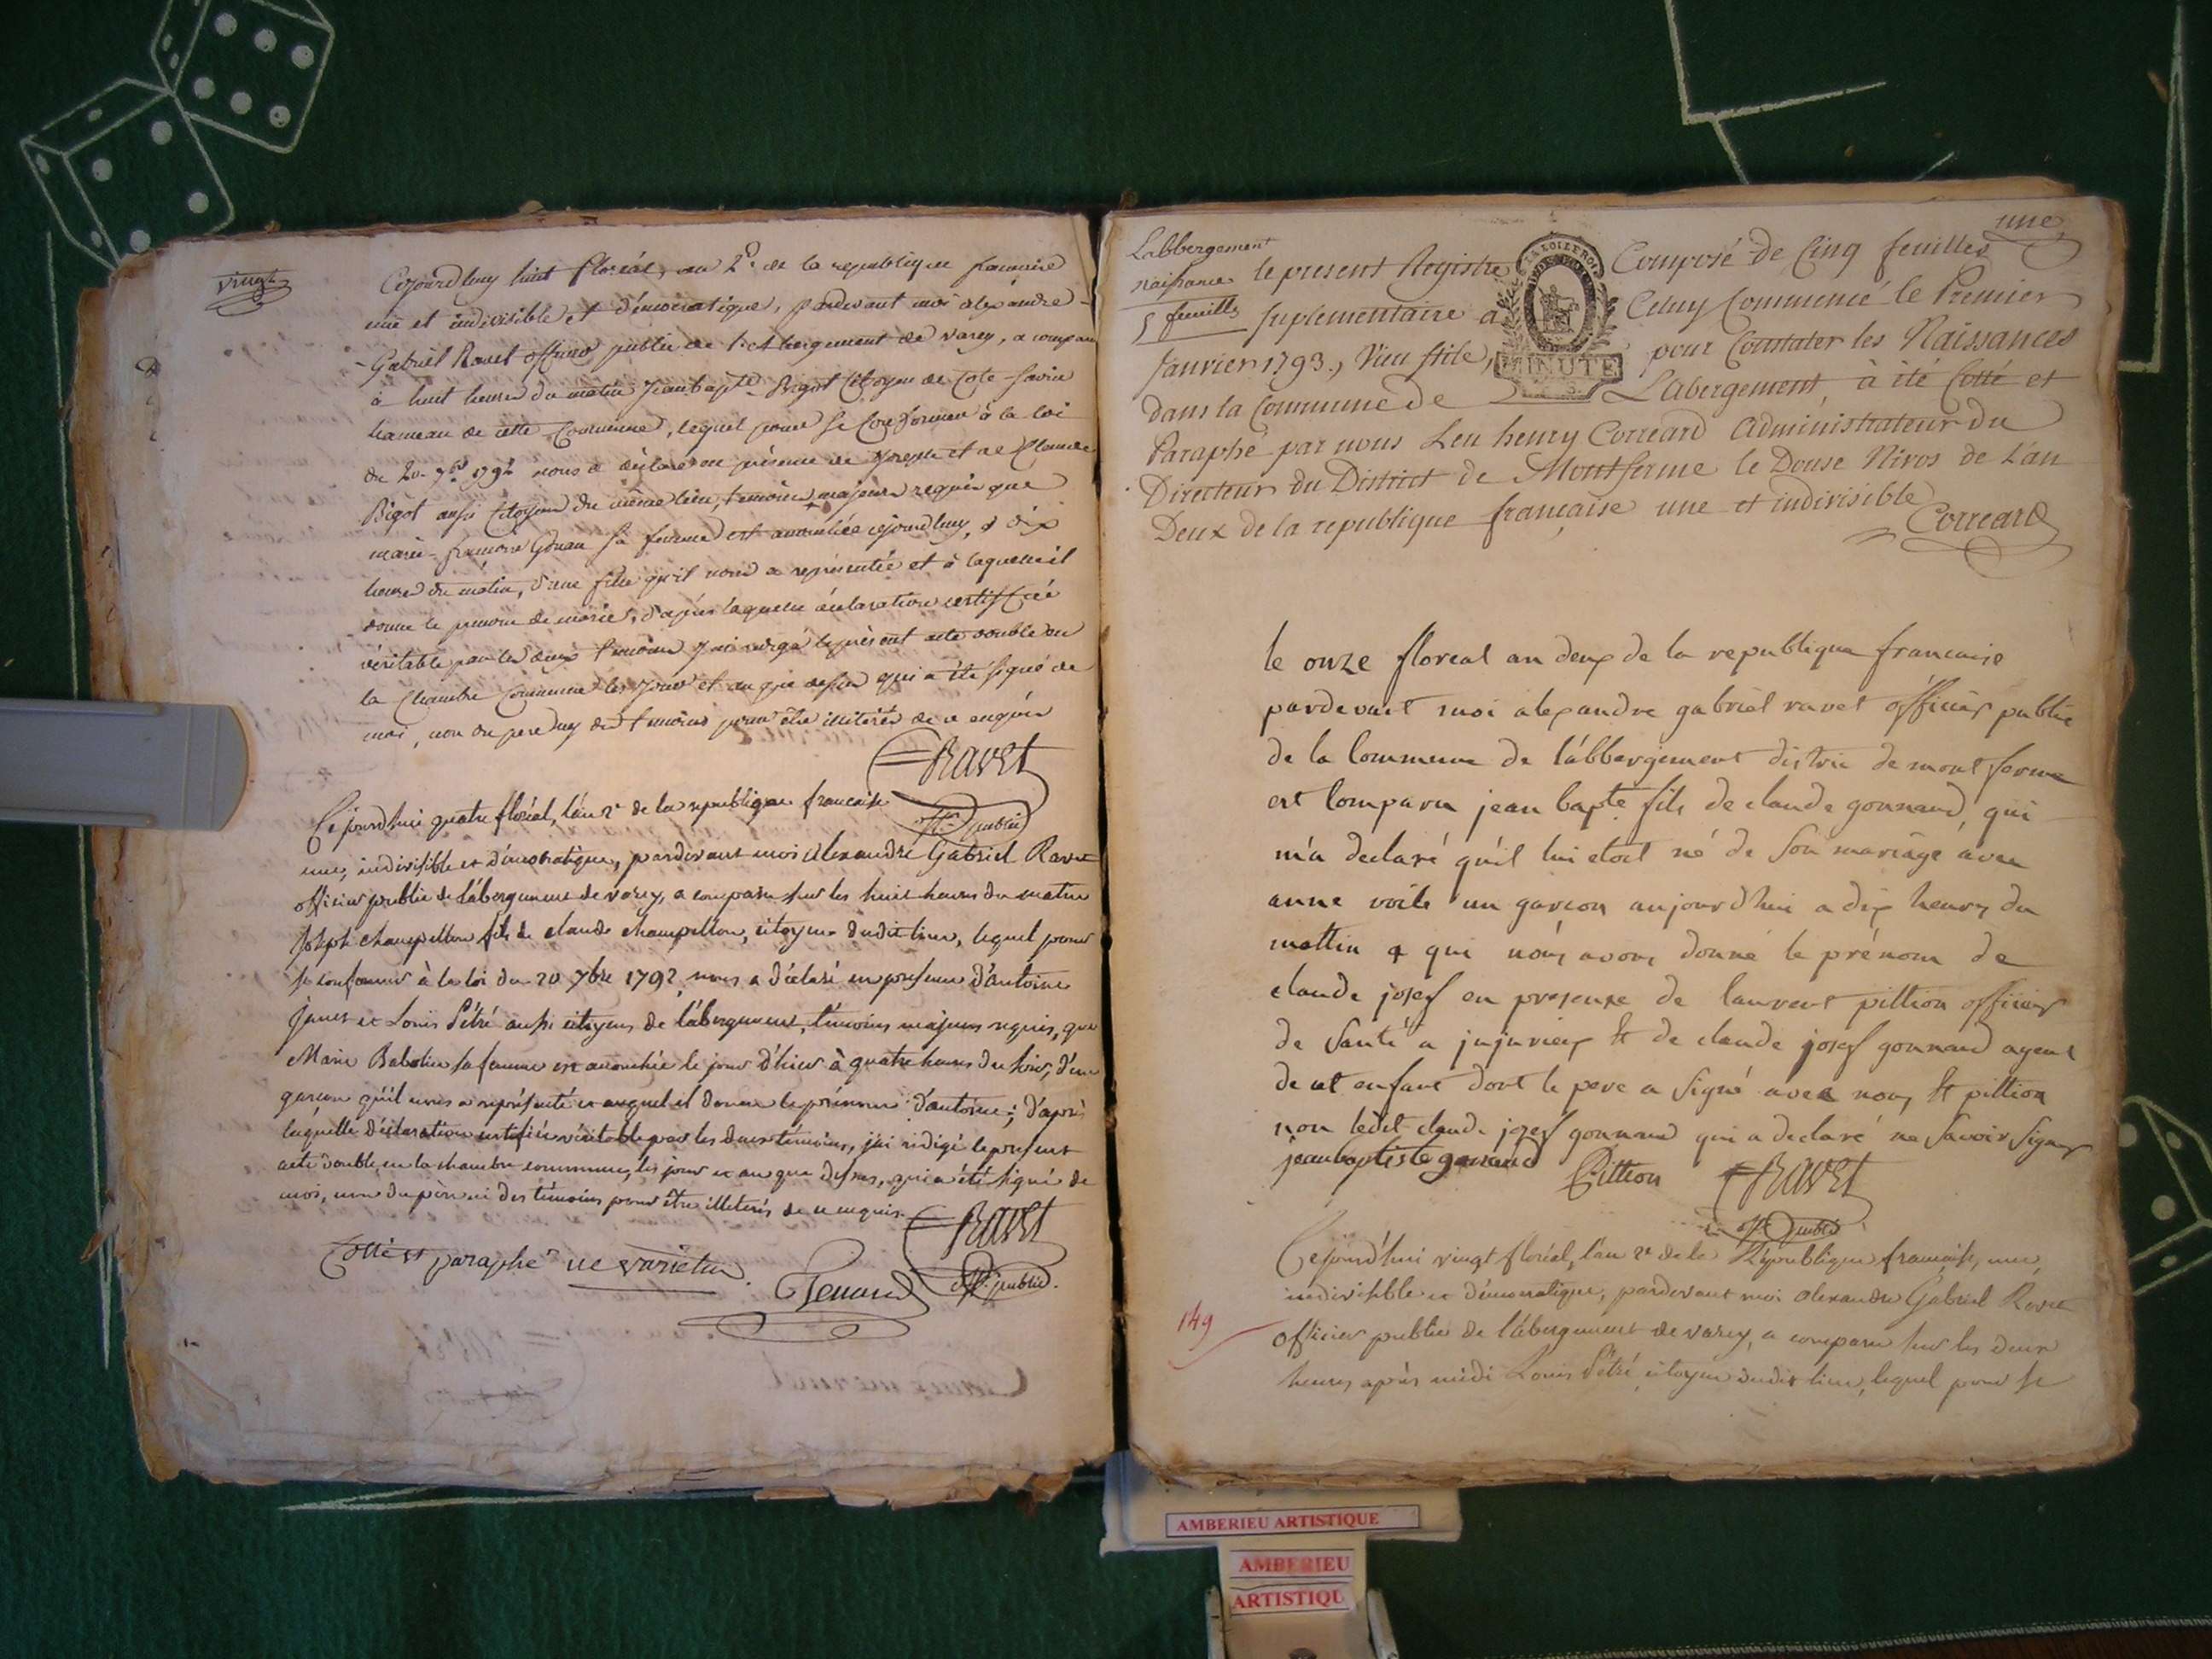 vingt
Cejourdhuy huit floréal, an 2e. de la republique francaise
une et indivisible et démocratique, pardevant moi alexandre
Gabriel Ravet officier public de l'Abergement de varey, a comparu
à huit heures du matin Jeanbapte. Bigot Citoyen de Cote-savin
hameau de cette Commune, lequel pour se Conformer à la loi
du 20. 7bre 1792 nous a déclaré en présence de Joseph et de Claude
Bigot aussi Citoyens du même lieu, temoins majeurs requis que
marie-francoise Gonan sa femme est accouchée cejourdhuy, à dix
heures du matin, d'une fille qu'il nous a représentée et à laquelle il
donne le prenom de marie, d'après laquelle déclaration certiffiée
véritable par les deux temoins J'ai redigé le présent acte double en
la Chambre Commune les jour et an que dessus qui a été signé de
moi, non du pere ny des temoins pour être illiterés de ce enquis
Ravet
off. public
Cejourd'hui quatre floréal, l'an 2e de la republique francaise
une, indivisible et démocratique, pardevant moi Alexandre Gabriel Ravet
officier public de l'abergement de varey, a comparu sur les huit heures du matin
Joseph champellon fils de claude champellon, citoyen dudit lieu, lequel pour
se conformer à la loi du 20 7bre 1792, nous a déclaré en presence d'antoine
Janet et Louis Pétré aussi citoyens de l'abergement, témoins majeurs requis, que
Marie Babolin sa femme est accouchée le jour d'hier à quatre heures du soir, d'un
garcon qu'il nous a représenté et auquel il donne le prénom d'antoine; d'après
laquelle déclaration certifiée véritable par les deux témoins, j'ai redigé le present
acte double en la chambre commune, les jour et an que dessus, qui a été signé de
moi, non du père ni des témoins pour être illeterés de ce enquis.
Ravet
off. public.
Cotté et paraphé ne varietur
une
Labbergement
naissance
5 feuilles
le present Registre Composé de Cinq feuilles
suplementaire a Celuy Commencé le Premier
Janvier 1793, Vieu stile, pour Constater les Naissances
LA LOI LE ROI
MINUTE
dans la Commune de L'Abergement, à été Cotté et
Paraphé par nous Leu henry Correard Administrateur du
Directeur du District de Montferme le Douse Nivos de L'an
Deux de la republique française une et indivisible
Correard
le onze floreal an deux de la republique francaise
pardevant moi alexandre gabriel ravet officier public
de la Commune de l'abbergement distric de mont ferme
est Comparu jean bapte. fils de claude gonnand, qui
m'a declaré qu'il lui etoit né de son mariage avec
anne voile un garcon aujourdhui a dix heures du
mattin a qui nous avons donné le prénom de
claude josef en presence de laurent pittion officier
de Santé a jujurieux et de claude josef gonnand agent
de cet enfant dont le pere a signé avec nous et pittion
non ledit claude josef gonnand qui a declaré ne savoir signer
jean baptiste gonnand Pittion Ravet
off. public
Cejourd'hui vingt floréal, l'an 2e de la République francaise, une,
indivisible et démocratique, pardevant moi Alexandre Gabriel Ravet
149
officier public de l'abergement de varey, a comparu sur les deux
heures après midi Louis Pétré, citoyen dudit lieu, lequel pour se
AMBERIEU ARTISTIQUE
AMBERIEU
ARTISTIQU